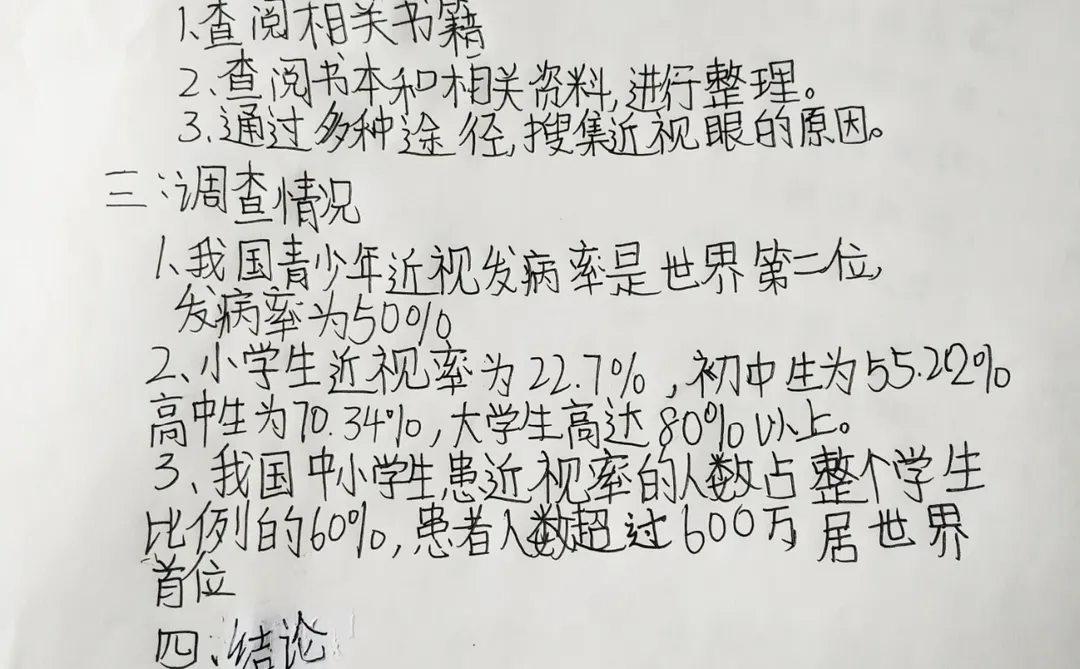 1.查阅相关书籍
2.查阅书本和相关资料,进行整理。
3.通过多种途径,搜集近视眼的原因。
三:调查情况
1、我国青少年近视发病率是世界第二位,
发病率为50%
2、小学生近视率为22.7%,初中生为55.22%
高中生为70.34%,大学生高达80%以上。
3、我国中小学生患近视率的人数占整个学生
比例的60%,患者人数超过600万,居世界
首位
四、结论